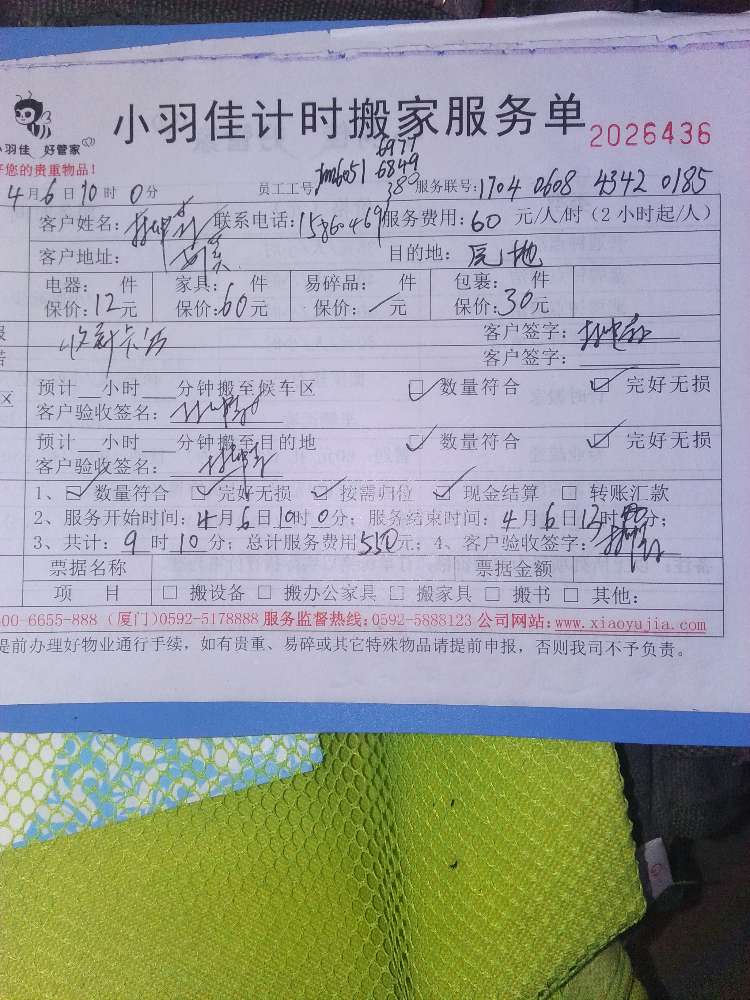 小羽佳计时搬家服务单 2026436
小羽佳 好管家
好您的贵重物品!
6977
xm6051 6849
380
4月6日10时0分 员工工号: 服务联号:1704 0608 4342 0185
客户姓名: 联系电话: 服务费用:60元/人/时(2小时起/人)
客户地址: 目的地:
电器: 件 家具: 件 易碎品: 件 包裹: 件
保价:12元 保价:60元 保价:/元 保价:30元
客户签字:
客户签字:
预计 小时 分钟搬至候车区 ☑数量符合 ☑完好无损
区 客户验收签名:
预计 小时 分钟搬至目的地 ☑数量符合 ☑完好无损
客户验收签名:
1、☑数量符合 ☑完好无损 ☑按需归位 ☑现金结算 □转账汇款
2、服务开始时间:4月6日10时0分;服务结束时间:4月6日13时 分;
3、共计:9时10分;总计服务费用550元;4、客户验收签字:
票据名称 票据金额
项 目 □搬设备 □搬办公家具 □搬家具 □搬书 □其他:
00-6655-888 (厦门)0592-5178888 服务监督热线:0592-5888123 公司网站:www.xiaoyujia.com
是前办理好物业通行手续,如有贵重、易碎或其它特殊物品请提前申报,否则我司不予负责。